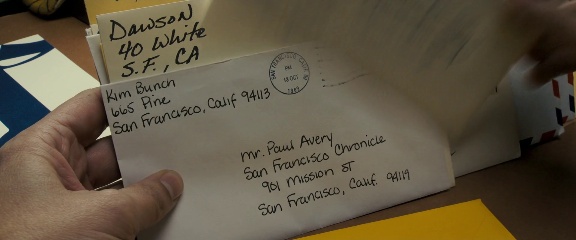 Dawson
40 White
S.F., CA
Kim Bunch
665 Pine
San Francisco, Calif 94113
PM
mr. Paul Avery
San Francisco Chronicle
901 mission ST
San Francisco, Calif. 94119